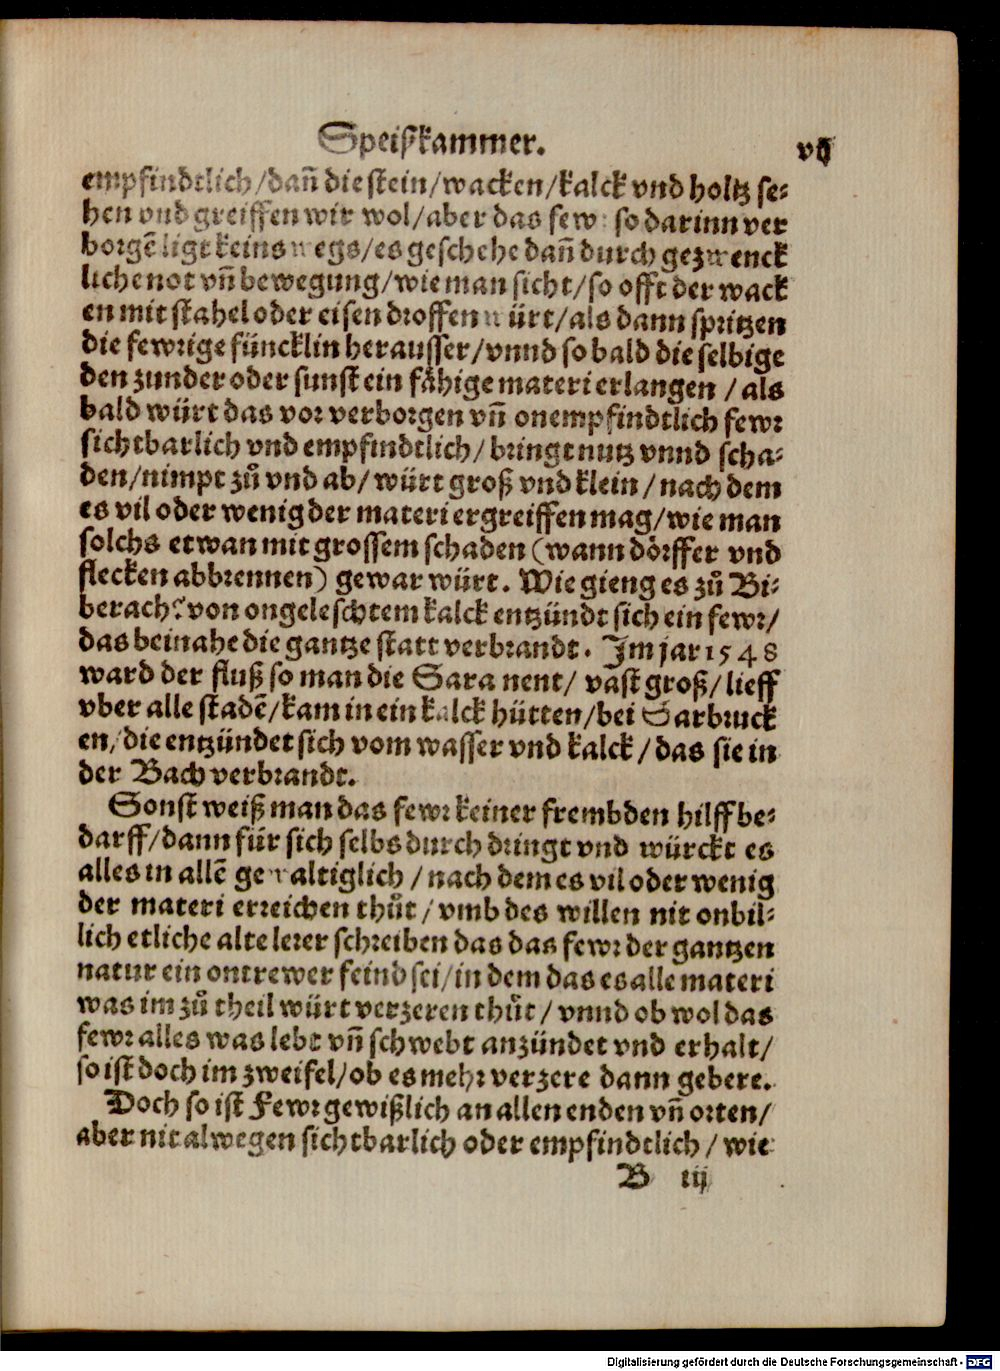 Speiſzkammer.
vij
empfindtlich/dañ die ſtein/wacken/kalck vnd holtz ſe⸗
hen vnd greiffen wir wol/aber das fewꝛ ſo darinn ver
boꝛgē ligt keins wegs/es geſchehe dañ durch gezwenck
liche not vñ bewegung/wie man ſicht/ſo offt der wack
en mit ſtahel oder eiſen droffen würt/als dann ſpꝛitzen
die fewꝛige füncklin herauſſer/vnnd ſo bald die ſelbige
den zunder oder ſunſt ein fähige materi erlangen/als
bald würt das voꝛ verboꝛgen vñ onempfindtlich fewꝛ
ſichtbarlich vnd empfindtlich/bꝛingt nutz vnnd ſcha⸗
den/nimpt zů vnd ab/würt groß vnd klein/nach dem
es vil oder wenig der materi ergreiffen mag/wie man
ſolchs etwan mit groſſem ſchaden (wann döꝛffer vnd
flecken abbꝛennen) gewar würt. Wie gieng es zů Bi⸗
berach? von ongeleſchtem kalck entzündt ſich ein fewꝛ/
das beinahe die gantze ſtatt verbꝛandt. Im jar 1548
ward der fluß ſo man die Sara nent/vaſt groß/lieff
vber alle ſtadē/kam in ein kalck hütten/bei Sarbꝛuck
en/die entzündet ſich vom waſſer vnd kalck/das ſie in
der Bach verbꝛandt.
Sonſt weiß man das fewꝛ keiner frembden hilff be⸗
darff/dann für ſich ſelbs durch dꝛingt vnd würckt es
alles in allē gewaltiglich/nach dem es vil oder wenig
der materi erꝛeichen thůt/vmb des willen nit onbil⸗
lich etliche alte lerer ſchꝛeiben das das fewꝛ der gantzen
natur ein ontrewer feind ſei/in dem das es alle materi
was im zů theil würt verzeren thůt/vnnd ob wol das
fewꝛ alles was lebt vñ ſchwebt anzündet vnd erhalt/
ſo iſt doch im zweifel/ob es mehꝛ verzere dann gebere.
Doch ſo iſt Fewꝛ gewißlich an allen enden vñ oꝛten/
aber nit alwegen ſichtbarlich oder empfindtlich/wie
B iij
Digitalisierung gefördert durch die Deutsche Forschungsgemeinschaft - DFG